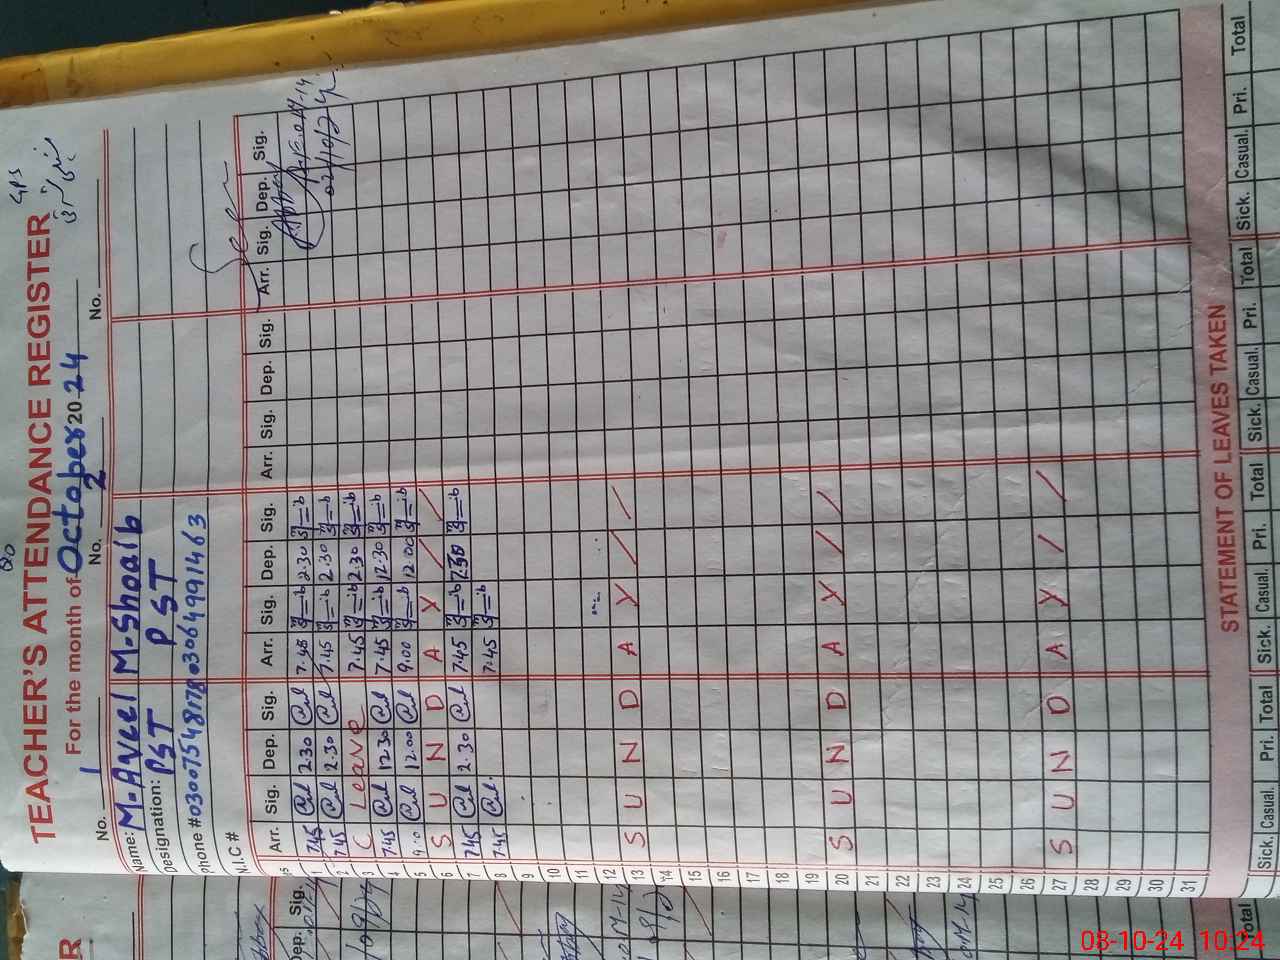 TEACHER'S ATTENDANCE REGISTER
For the month of October 2024
No. 1 No. 2 No.
Name: M.Avel M.Shoaib
Designation: PST PST
Phone # 03064991463
N.I.C #
Arr. Sig. Dep. Sig. Arr. Sig. Dep. Sig. Arr. Sig. Dep. Sig. Arr. Sig. Dep. Sig.
1 7.45 2.30 7.45 2.30
2 7.45 2.30 7.45 2.30
3 C Leave 7.45 2.30
4 7.45 12.30 7.45 12.30
5 12.00 9.00 12.00
6 S U N D A Y / /
7 7.45 2.30 7.45 2.30
8 7.45 7.45
9
10
11
12
13 S U N D A Y / /
14
15
16
17
18
19
20 S U N D A Y / /
21
22
23
24
25
26
27 S U N D A Y / /
28
29
30
31
STATEMENT OF LEAVES TAKEN
Sick. Casual. Pri. Total Sick. Casual. Pri. Total Sick. Casual. Pri. Total Sick. Casual. Pri. Total
08-10-24 10:24